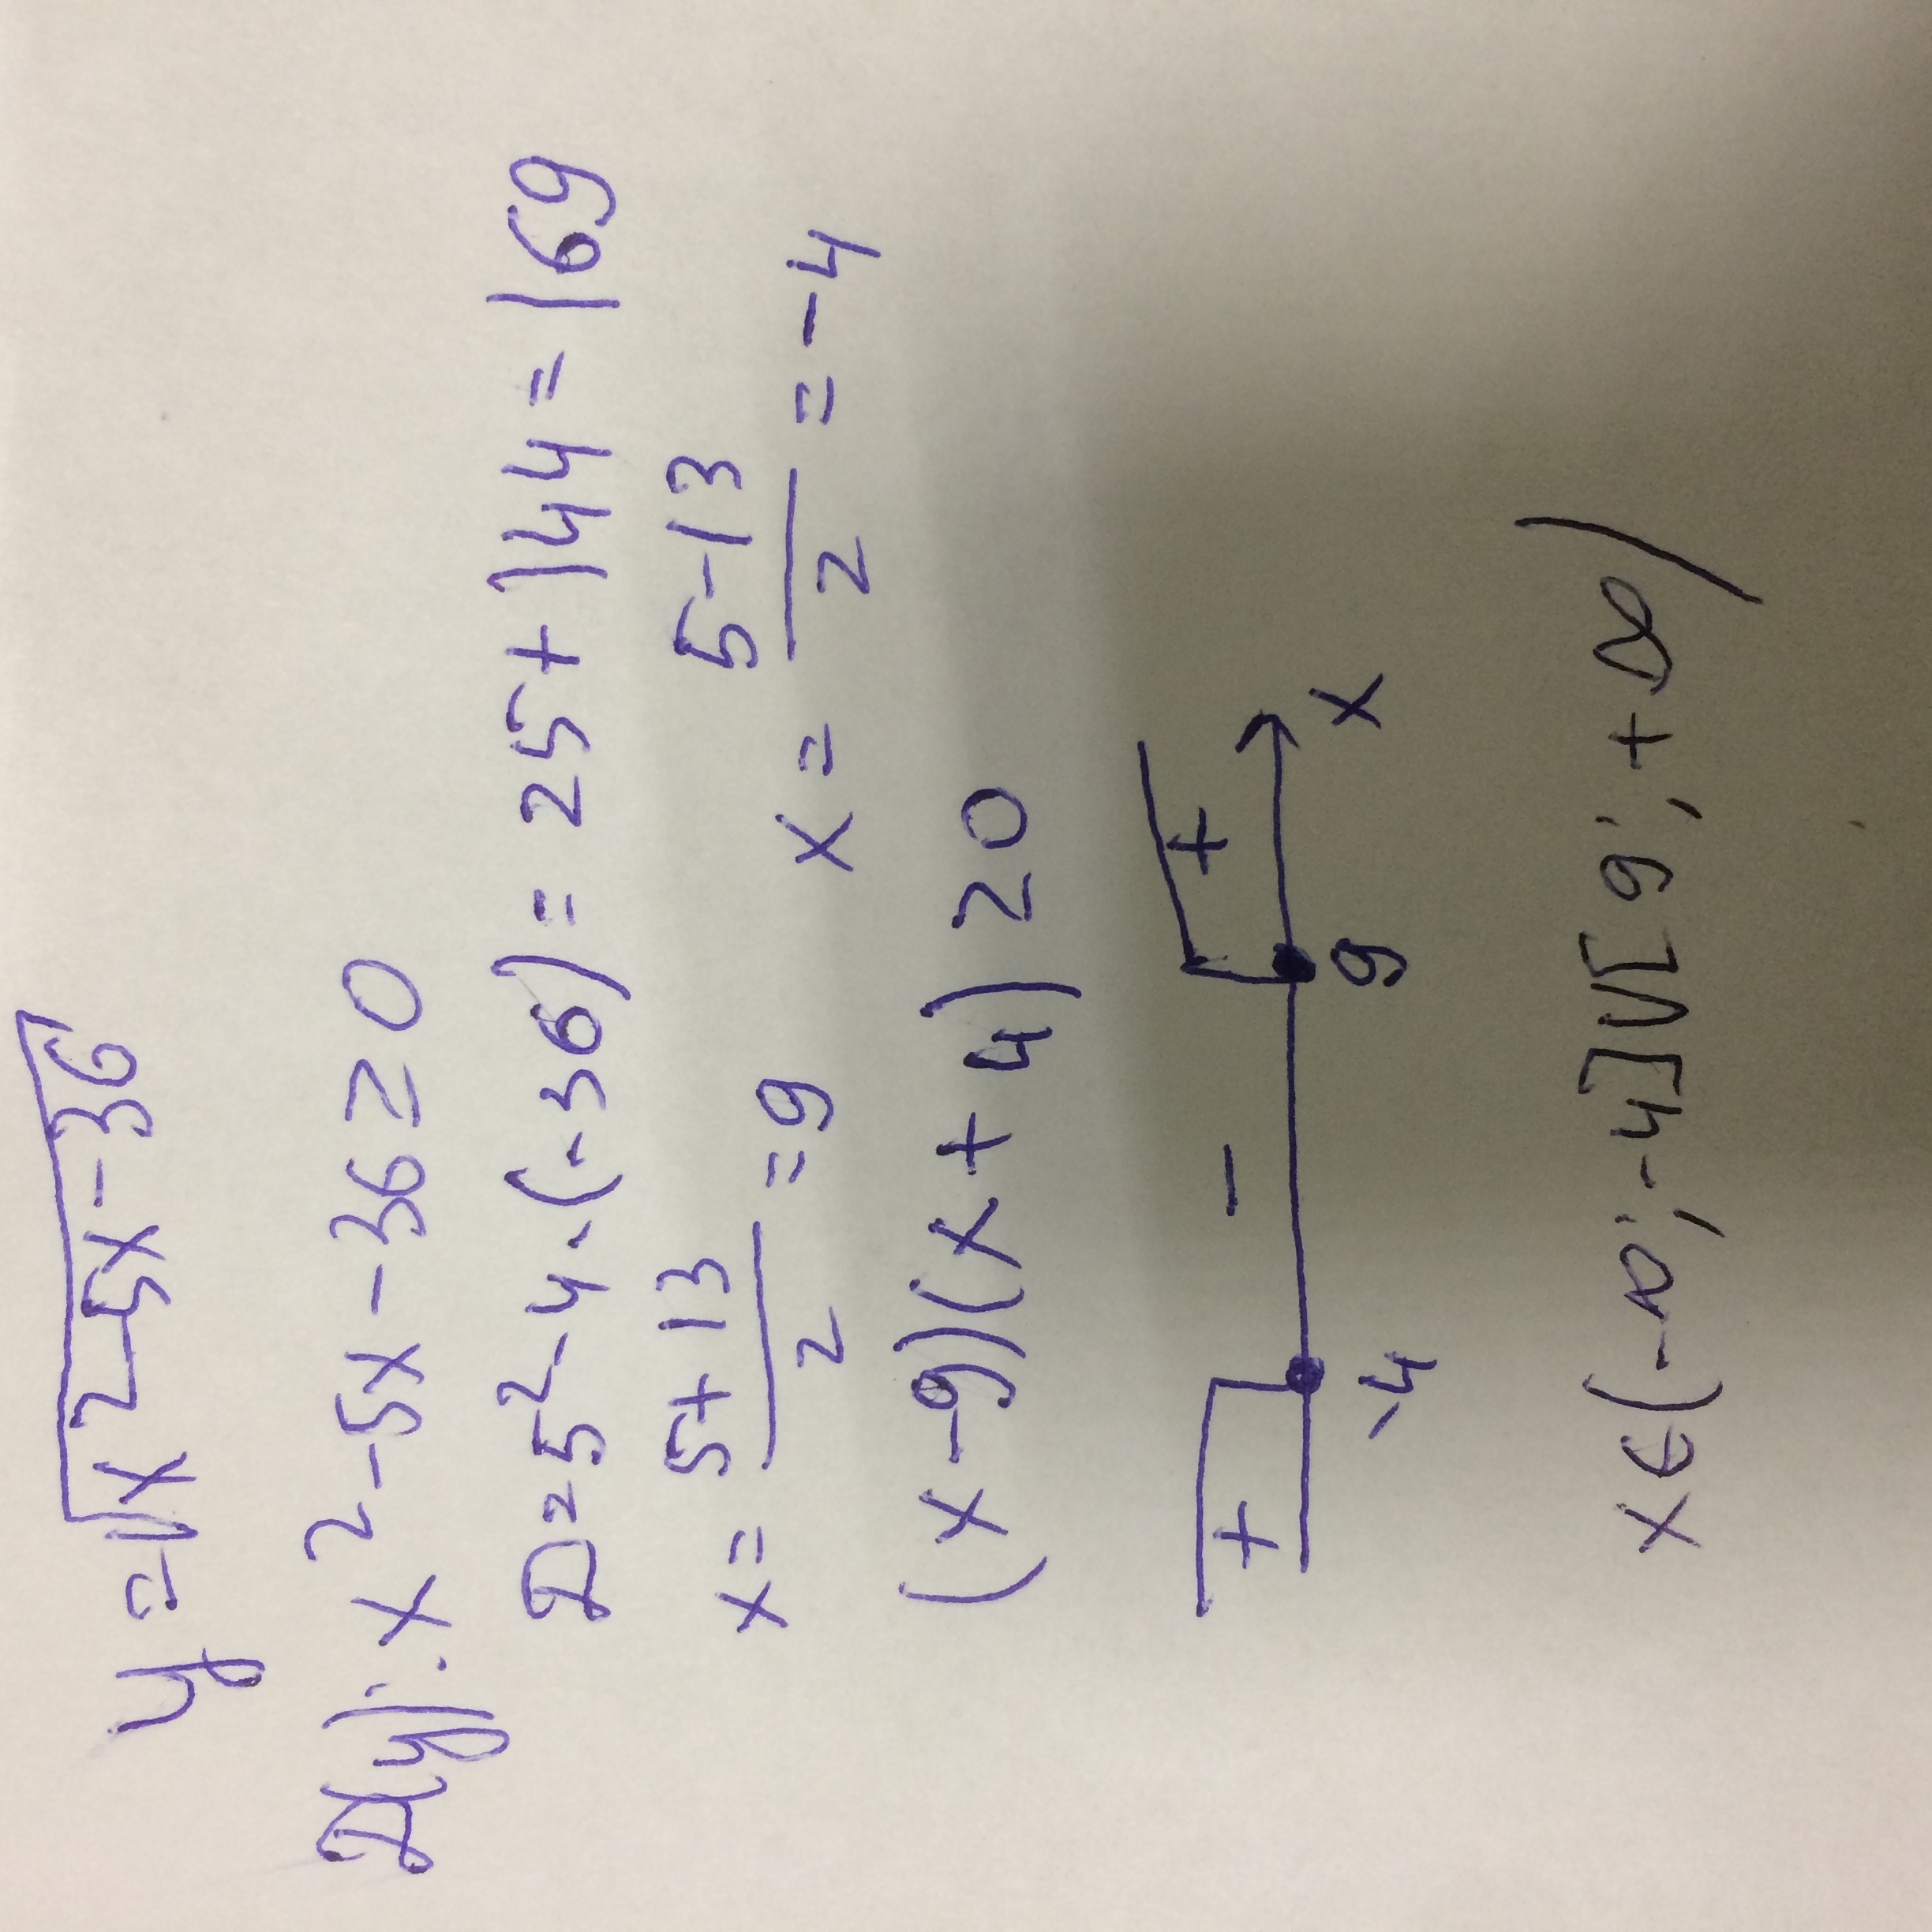 y = √x² - 5x - 36
D(y): x² - 5x - 36 ≥ 0
D = 5² - 4 · (-36) = 25 + 144 = 169
x = (5 + 13)/2 = 9    x = (5 - 13)/2 = -4
(x - 9)(x + 4) ≥ 0
+ - +
-4 9 x
x ∈ (-∞; -4] ∪ [9; +∞)